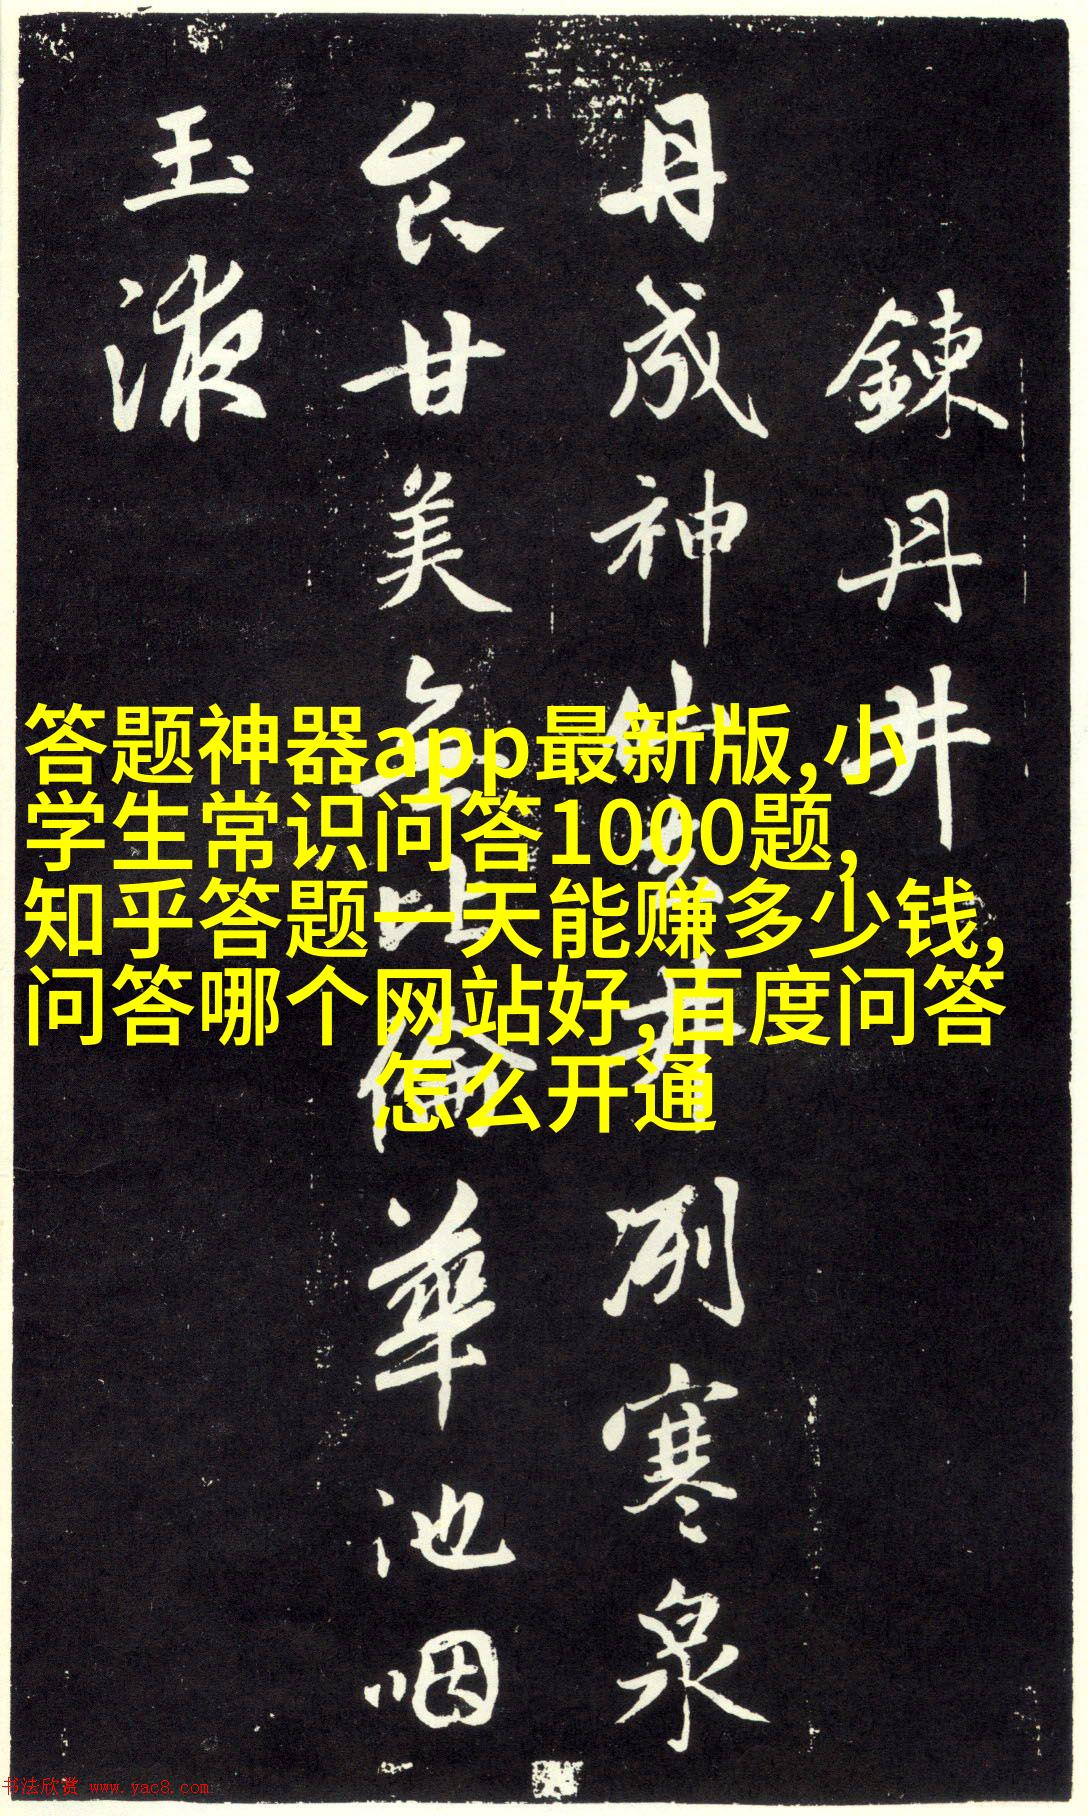 鍊丹井
丹成神仙去井冽寒泉
食甘美無比倫華池咽
玉液
答题神器app最新版,小
学生常识问答1000题,
知乎答题一天能赚多少钱,
问答哪个网站好,百度问答
怎么开通
书法欣赏 www.yac8.com